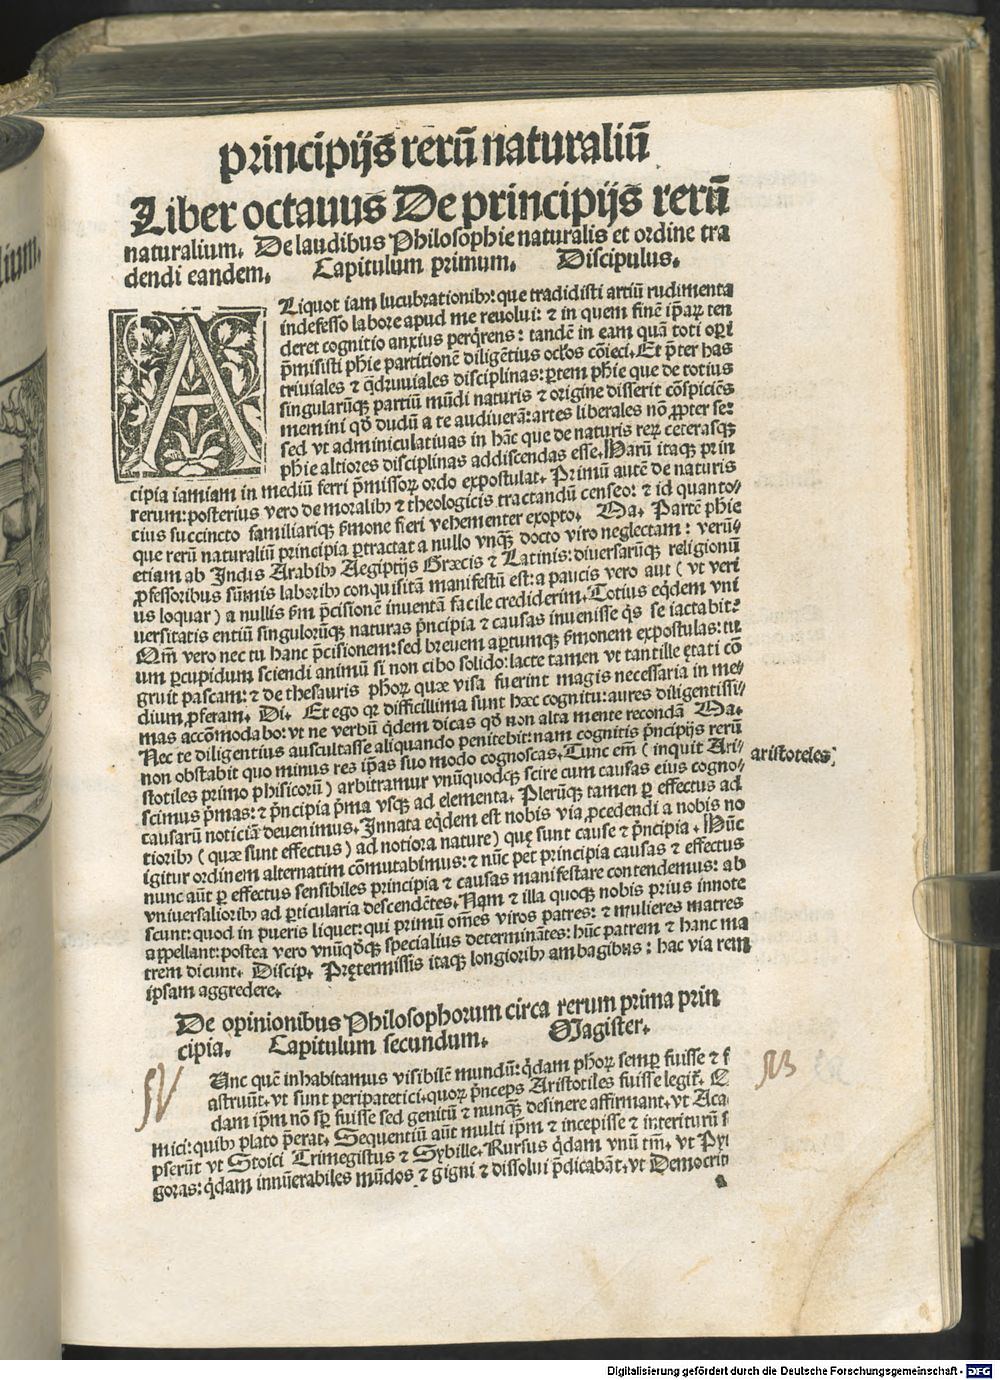 principijs rerū naturaliū
Liber octauus De principijs rerū
naturalium. De laudibus Philosophie naturalis et ordine tra
dendi eandem. Capitulum primum. Discipulus.
ALiquot iam lucubrationibꝰ: que tradidisti artiū rudimenta
indefesso labore apud me reuolui: ⁊ in quem finē ip̄aꝝ ten
deret cognitio anxius perq̄rens: tandē in eam quā toti operi
p̄misisti ph̄ie partitionē diligētius oc̄los cōieci. Et p̄ter has
triuiales ⁊ q̄druuiales disciplinas: ꝑtem ph̄ie que de totius
singularūqꝫ partiū mūdi naturis ⁊ origine disserit cōspiciēs
memini qd̄ dudū a te audiuerā: artes liberales nō ꝓpter se:
sed vt adminiculatiuas in hāc que de naturis reꝝ ceterasqꝫ
ph̄ie altiores disciplinas addiscendas esse. Harū itaqꝫ prin
cipia iamiam in mediū ferri p̄missoꝝ ordo expostulat. Primū autē de naturis
rerum: posterius vero de moralibꝰ ⁊ theologicis tractandū censeo: ⁊ id quanto-
cius succincto familiariqꝫ s̄mone fieri vehementer exopto. Ma. Partē ph̄ie
que rerū naturaliū principia ꝑtractat a nullo vnqꝫ docto viro neglectam: verū-
etiam ab Indis Arabibꝰ Aegiptijs Græcis ⁊ Latinis: diuersarūqꝫ religionū
ꝓfessoribus sūmis laboribꝰ conquisitā manifestū est: a paucis vero aut (vt veri
us loquar) a nullis s̄m p̄cisionē inuentā facile crediderim. Totius eq̄dem vni
uersitatis entiū singulorūqꝫ naturas p̄ncipia ⁊ causas inuenisse q̄s se iactabit?
Qm̄ vero nec tu hanc p̄cisionem: sed breuem aꝑtumqꝫ s̄monem expostulas: tu
um ꝑcupidum sciendi animū si non cibo solido: lacte tamen vt tantille ętati cō
gruit pascam: ⁊ de thesauris ph̄oꝝ quæ visa fuerint magis necessaria in me-
dium ꝓferam. Di. Et ego qꝛ difficillima sunt hæc cognitu: aures diligentissi-
mas accōmodabo: vt ne verbū q̄dem dicas qd̄ non alta mente recondā Ma.
Nec te diligentius auscultasse aliquando penitebit: nam cognitis p̄ncipijs rerū
non obstabit quo minus res ip̄as suo modo cognoscas. Tunc em̄ (inquit Ari-
stotiles primo phisicorū) arbitramur vnūquodcꝫ scire cum causas eius cogno-
scimus p̄mas: ⁊ p̄ncipia p̄ma vsqꝫ ad elementa. Plerūqꝫ tamen ꝑ effectus ad
causarū noticiā deuenimus. Innata eq̄dem est nobis via ꝓcedendi a nobis no
tioribꝰ (quæ sunt effectus) ad notiora nature) quę sunt cause ⁊ p̄ncipia. Nūc
igitur ordinem alternatim cōmutabimus: ⁊ nūc per principia causas ⁊ effectus
nunc aūt ꝑ effectus sensibiles principia ⁊ causas manifestare contendemus: ab
vniuersalioribꝰ ad ꝑticularia descendētes. Nam ⁊ illa quoqꝫ nobis prius innote
scunt: quod in pueris liquet: qui primū om̄es viros patres: ⁊ mulieres matres
appellant: postea vero vnūqd̄qꝫ specialius determinātes: hūc patrem ⁊ hanc ma
trem dicunt. Discip. Prętermissis itaqꝫ longioribꝰ ambagibus: hac via rem
ipsam aggredere.
aristoteles
De opinionibus Philosophorum circa rerum prima prin
cipia. Capitulum secundum. Magister.
Unc quē inhabitamus visibilē mundū: q̄dam ph̄oꝝ semꝑ fuisse ⁊
astruūt. vt sunt peripatetici. quoꝝ p̄nceps Aristotiles fuisse legit̄.
dam ip̄m nō sꝑ fuisse sed genitū ⁊ nunqꝫ desinere affirmant. vt Aca
mici: quibꝰ plato p̄erat. Sequentiū aūt multi ip̄m ⁊ incepisse ⁊ interiturū
pserūt vt Stoici Trimegistus ⁊ Sybille. Rursus q̄dam vnū tm̄. vt Py
goras: q̄dam innūerabiles mūdos ⁊ gigni ⁊ dissolui p̄dicabāt. vt Democrit
a
Digitalisierung gefördert durch die Deutsche Forschungsgemeinschaft - DFG